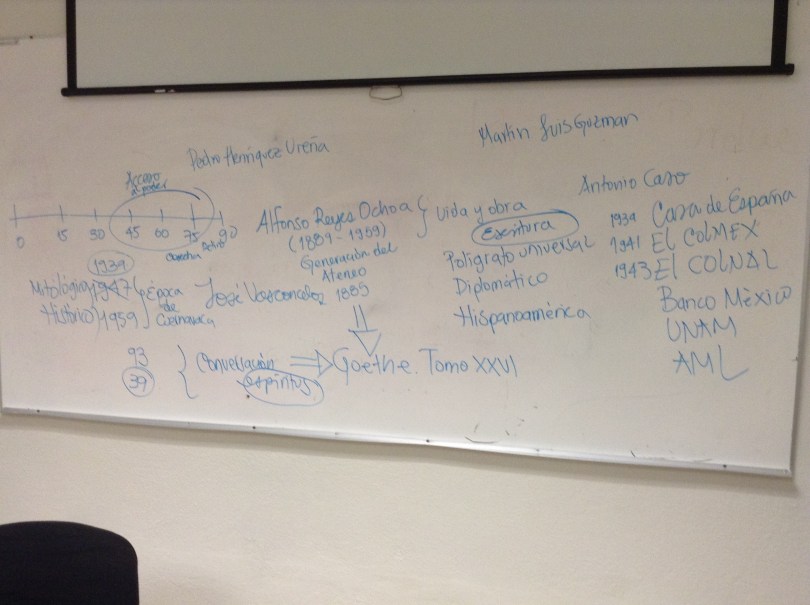 Pedro Henríquez Ureña
Martín Luis Guzman
Antonio Caso
Acceso
al poder
0 15 30 45 60 75 90
1939
Mitológico 1947
Histórico 1959
Época
de
Cuernavaca
Alfonso Reyes Ochoa
(1889-1959)
Generación del
Ateneo
José Vasconcelos 1889
Vida y obra
Escritura
Polígrafo universal
Diplomático
Hispanoamérica
1939 Casa de España
1941 El COLMEX
1943 El COLNAL
Banco México
UNAM
AML
93
39
Conversación
espíritus
Goethe. Tomo XXVI